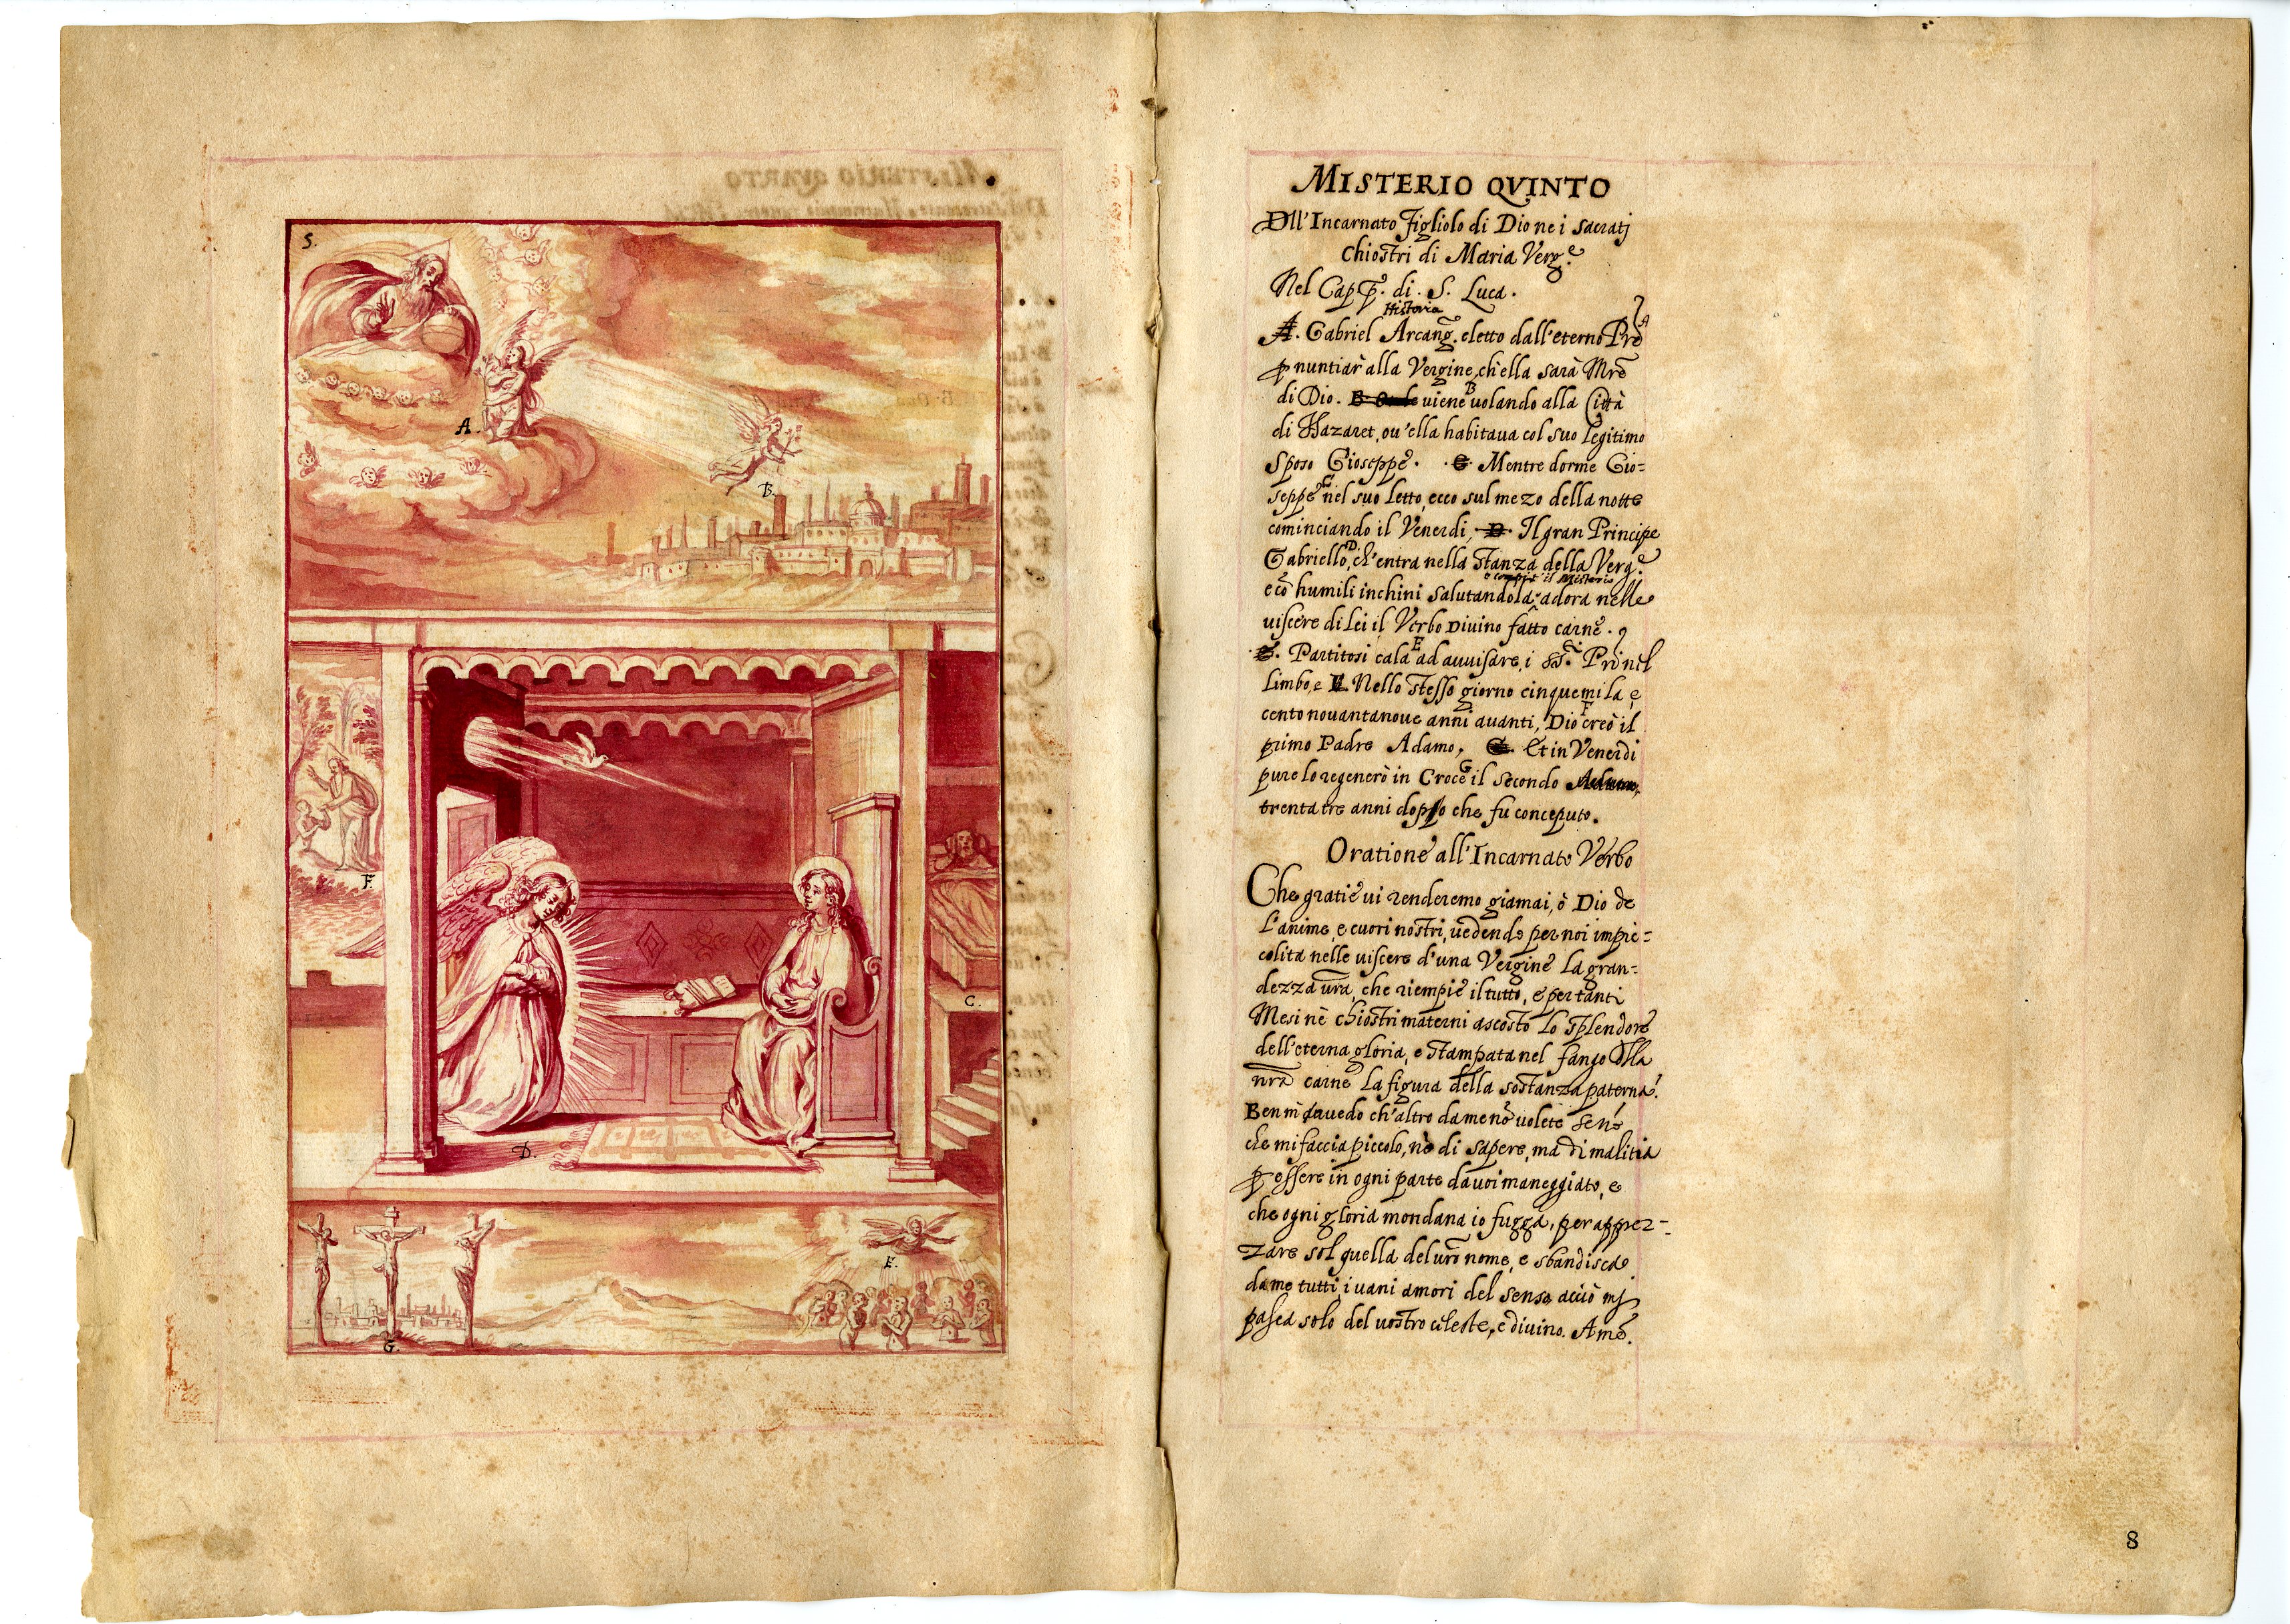 S.
A.
B.
F.
C.
D.
E.
G.
MISTERIO QVINTO
Dll'Incarnato Figliolo di Dio ne i sacratj
chiostri di Maria Verg.e
Nel Cap p.o di. S. Luca.
Historia
A. Gabriel Arcang. eletto dall'eterno Pre A
p nuntiar alla Vergine, ch'ella sarà Mre
di Dio. B. Onde uiene B uolando alla Città
di Nazaret, ou'ella habitaua col suo legitimo
sposo Gioseppe. C. Mentre dorme Gio=
seppe C nel suo letto, ecco sul mezo della notte
cominciando il Venerdi, D. Il gran Principe
Gabriello D, ch'entra nella stanza della Verg.e
e compit' il Misterio
e cō humili inchini salutandola adora nelle
uiscere di lei il Verbo Diuino fatto carne.
E. Partitosi cala E ad auuisare, i Pri nel
limbo, e F. Nello stesso giorno cinquemila, e
cento nouantanoue anni auanti, Dio F creò il
primo Padre Adamo, G. Et in Venerdi
pure lo regenerò in Croce G il secondo Adamo,
trentatre anni doppo che fu conceputo.
Oratione all'Incarnato Verbo
Che gratie ui renderemo giamai, ò Dio de
l'anime, e cuori nostri, uedendo per noi impic=
colita nelle uiscere d'una Vergine la gran=
dezza ura, che riempie il tutto, e per tanti
Mesi nè chiostri materni ascosto lo splendore
dell'eterna gloria, e stampata nel fango dlla
nra carne la figura della sostanza paterna.
Ben m'auuedo ch'altro da me nō uolete senō
che mi faccia piccolo, nō di sapere, ma di malitia
p essere in ogni parte da uoi maneggiato, e
che ogni gloria mondana io fugga, per apprez=
zare sol quella del uro nome, e sbandisca
da me tutti i uani amori del senso acciò mj
pasca solo del uostro celeste, e diuino. Amē.
8